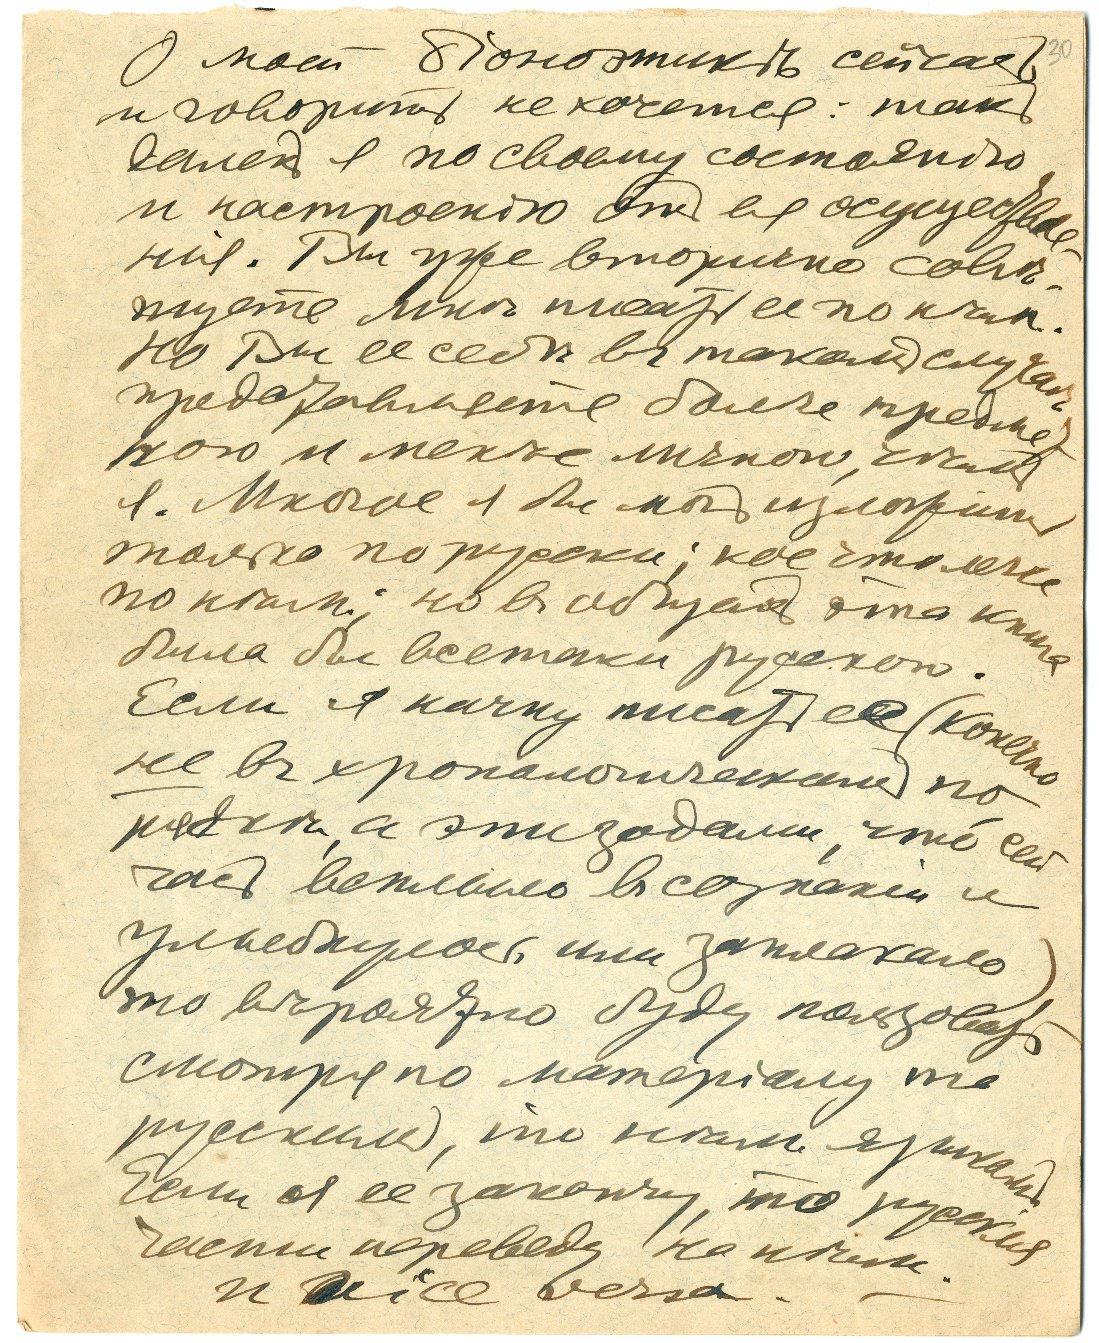 О моей біоноэтикѣ сейчасъ 30
и говорить не хочется: такъ
далекъ я по своему состоянію
и настроенію отъ ея осуществле-
нія. Вы уже вторично совѣ-
туете мнѣ писать ее по нѣм.
Но Вы ее себѣ въ такомъ случаѣ
представляете болѣе предмет
ною и менѣе личною, чѣмъ
я. Многое я бы могъ изложить
только по русски; кое что легче
по нѣм.; но въ общемъ эта книга
была бы всетаки русскою.
Если я начну писать ее (конечно
не въ хронологическомъ по
рядкѣ, а эпизодами, что сей
часъ всплыло въ сознаніи и
улыбнулось или заплакало)
то вѣроятно буду пользовать
смотря по матеріалу то
русскимъ, то нѣмъ. языкомъ
Если я ее закончу, то русскія
части переведу на нѣм.
и vice versa. —